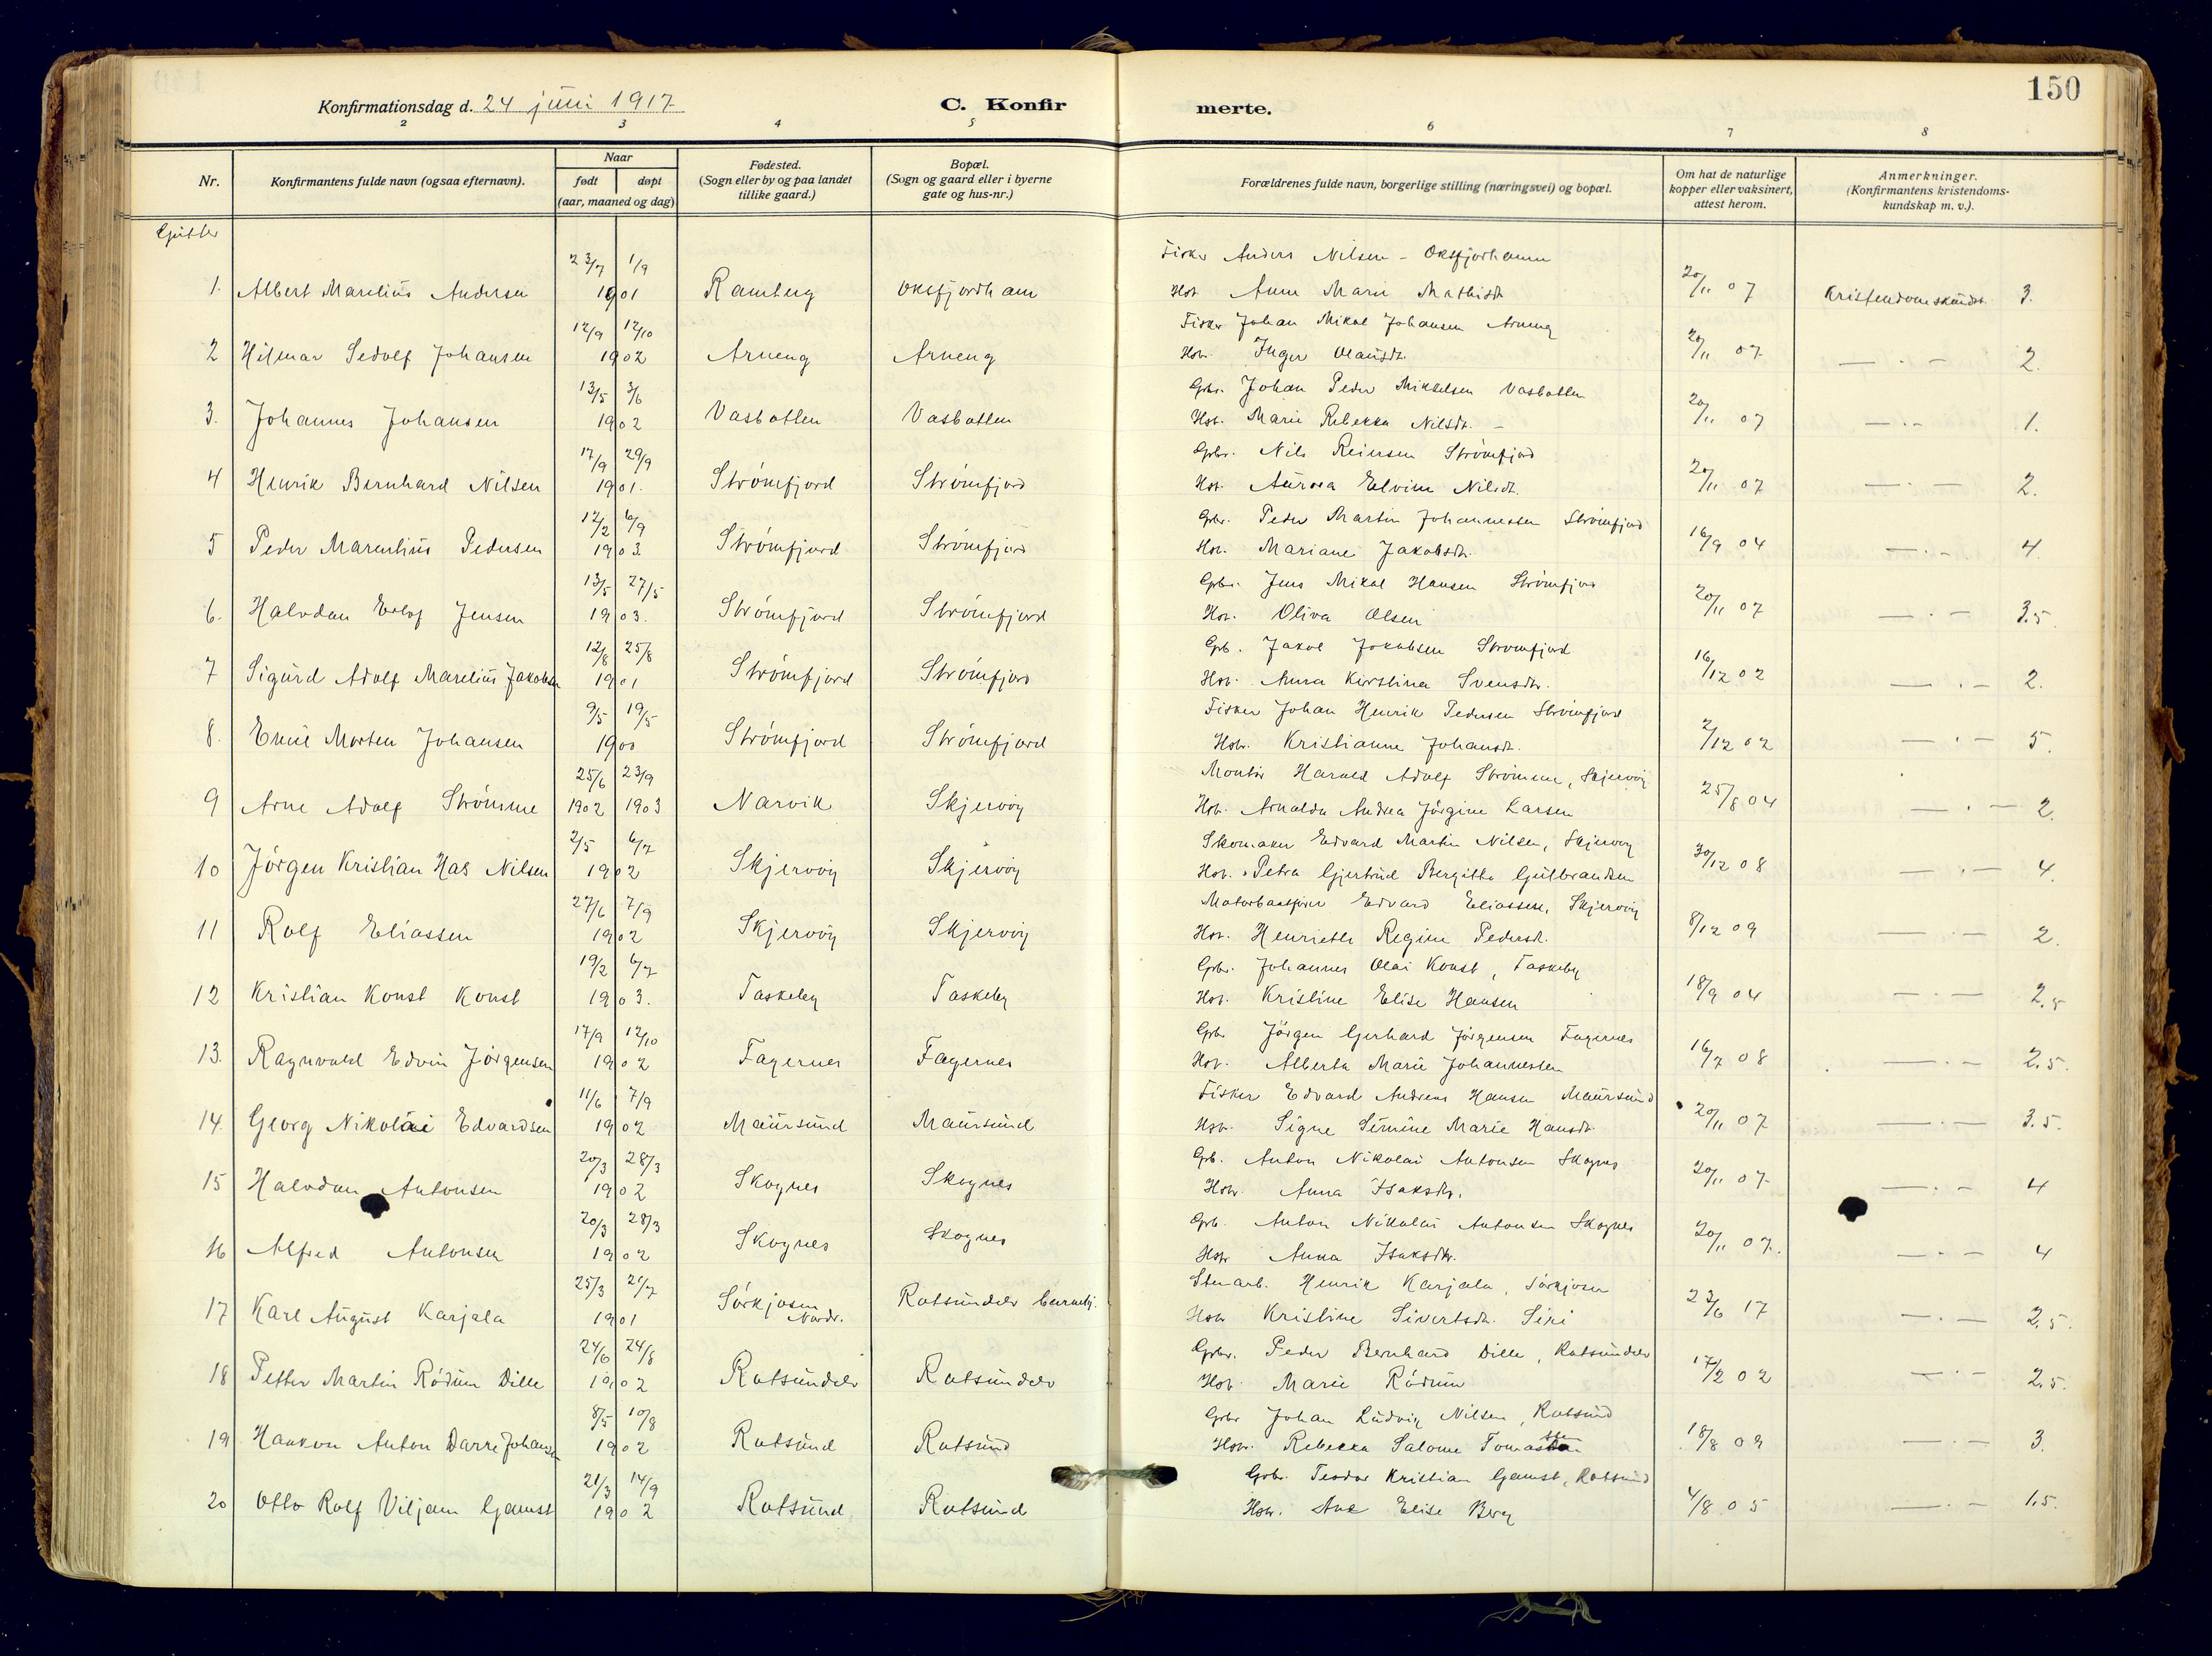 150
Konfirmationsdag d. 24 juni 1917
C. Konfirmerte.
2 3 4 5 6 7 8
Nr.
Konfirmantens fulde navn (ogsaa efternavn).
Naar
født døpt
(aar, maaned og dag)
Fødested.
(Sogn eller by og paa landet
tillike gaard.)
Bopæl.
(Sogn og gaard eller i byerne
gate og hus-nr.)
Forældrenes fulde navn, borgerlige stilling (næringsvei) og bopæl.
Om hat de naturlige
kopper eller vaksinert,
attest herom.
Anmerkninger.
(Konfirmantens kristendoms-
kundskap m. v.).
Gutter
23/7 1/9 Fisker Anders Nilsen - Oksfjordhamn
1. Albert Marelius Andersen 1901 Ramberg Oksfjordham Hst. Anne Marie Mathisdt. 20/11 07 Kristendomskundsk. 3.
12/9 12/10 Fisker Johan Mikal Johansen Arneng
2 Hilmar Sedolf Johansen 1902 Arneng Arneng Hst. Inger Olausdt. 20/11 07 — . — 2.
13/5 3/6 Gbr. Johan Peder Mikkelsen Vasbotten
3. Johannes Johansen 1902 Vasbotten Vasbotten Hst. Marie Rebekka Nilsdt. - 20/11 07 — . — 1.
17/9 29/9 Gbr. Nils Reiersen Strömfjord
4 Henrik Bernhard Nilsen 1901. Strömfjord Strömfjord Hst. Aurora Elvine Nilsdt. 20/11 07 — . — 2.
12/2 6/9 Gbr. Peder Martin Johannessen Strömfjord
5 Peder Marentius Pedersen 1903. Strömfjord Strömfjord Hst. Mariane Jakobsdt. 16/9 04 — . — 4.
13/5 27/5 Gbr. Jens Mikal Hansen Strömfjord
6. Halvdan Erlof Jensen 1903. Strömfjord Strömfjord Hst. Oliva Olsen 20/11 07 — . — 3.5.
12/8 25/8 Gb. Jakob Jakobsen Strömfjord
7 Sigurd Adolf Marelius Jakobsen 1901 Strömfjord Strömfjord Hst. Anna Kirstina Svensdtr. 16/12 02 — . — 2.
9/5 19/5 Fisker Johan Henrik Pedersen Strömfjord
8. Emil Morten Johansen 1900 Strömfjord Strömfjord Hst. Kristianne Johansdt. 2/12 02 — . — 5.
25/6 23/9 Montör Harald Adolf Strömme, Skjervöy
9 Arne Adolf Strömme 1902 1903 Narvik Skjervöy Hst. Arnalda Andrea Jörgine Larsen 25/8 04 — . — 2.
2/5 6/7 Skomaker Edvard Martin Nilsen, Skjervöy
10 Jörgen Kristian Has Nilsen 1902 Skjervöy Skjervöy Hst. Petra Gjertrud Bergitte Gulbrandsen 30/12 08 — . — 4.
27/6 7/9 Motorbaatfører Edvard Eliassen, Skjervöy
11 Rolf Eliassen 1902 Skjervöy Skjervöy Hst. Henriette Regine Pedersdt. 8/12 09 — . — 2.
19/2 6/7 Gbr. Johannes Olai Konst, Taskeby
12 Kristian Konst Konst 1903. Taskeby Taskeby Hst. Kristine Elise Hansen 18/9 04 — . — 2.5
17/9 12/10 Gbr Jörgen Gerhard Jörgensen Fagernes
13. Ragnvald Edvin Jörgensen 1902 Fagernes Fagernes Hst. Alberta Marie Johannessen 16/7 08 — . — 2.5.
11/6 7/9 Fisker Edvard Andreas Hansen Maursund
14. Georg Nikolai Edvardsen 1902 Maursund Maursund Hst. Signe Simine Marie Hansdt. 20/11 07 — . — 3.5.
20/3 28/3 Gb. Anton Nikolai Antonsen Skognes
15 Halvdan Antonsen 1902 Skognes Skognes Hstr. Anna Isaksdtr. 20/11 07 — . — 4
20/3 28/3 Gb. Anton Nikolai Antonsen Skognes
16 Alfred Antonsen 1902 Skognes Skognes Hstr Anna Isaksdtr. 20/11 07. — . — 4
25/3 21/7 Stenarb. Henrik Karjala, Sörkjosen
17 Karl August Karjala 1901 Sörkjosen Nordr. Rotsundelv barnehj. Hstr Kristine Sivertsdt. Siri 23/6 17 — . — 2.5.
24/6 24/8 Gbr. Peder Bernhard Dille, Rotsundelv
18 Petter Martin Rödum Dille 1902 Rotsundelv Rotsundelv Hst. Marie Rödum 17/2 02 — . — 2.5.
8/5 10/8 Gbr Johan Ludvig Nilsen, Rotsund
19 Haakon Anton Darre Johansen 1902 Rotsund Rotsund Hstr. Rebekka Salome Tomassen 18/8 09 — . — 3.
21/3 14/9 Gbr. Teodor Kristian Gamst, Rotsund
20 Otto Rolf Viljam Gamst 1902 Rotsund Rotsund Hstr. Ane Elise Berg 4/8 05 — . — 1.5.